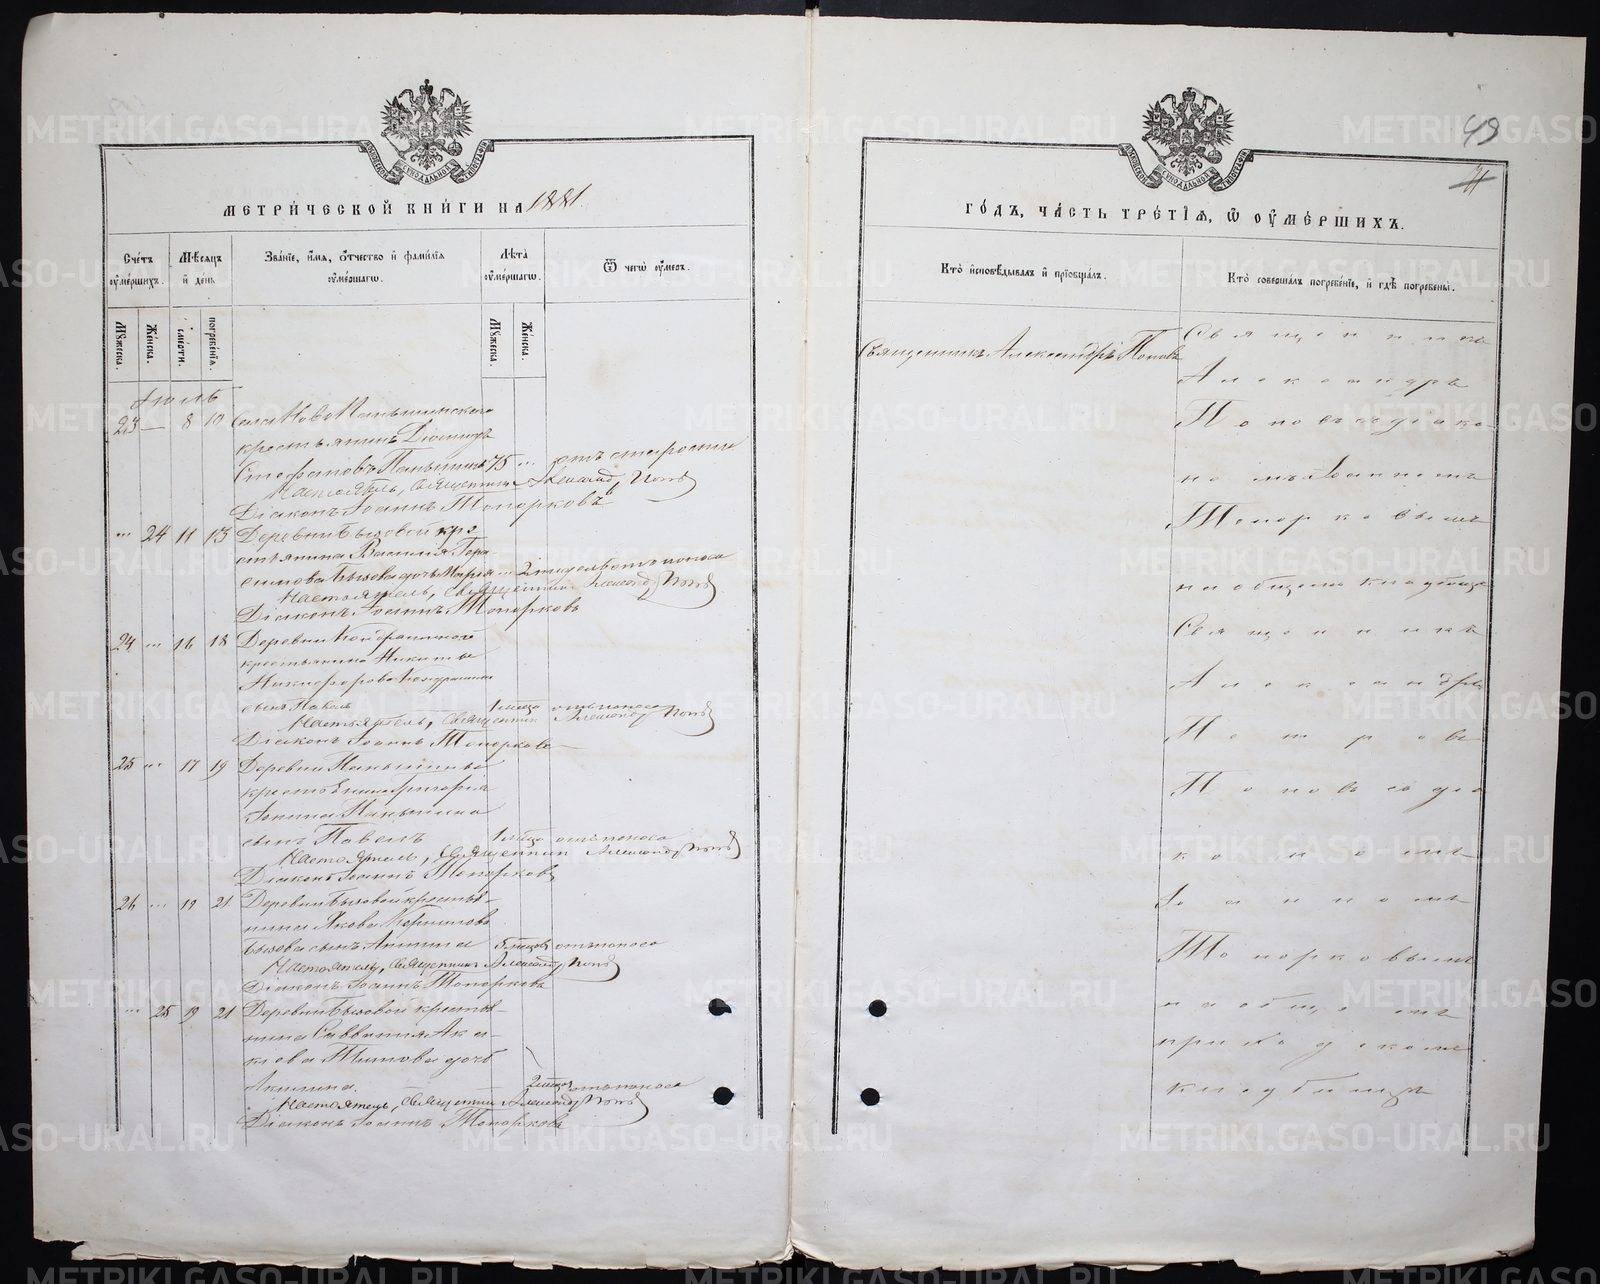 МЕТРИ́ЧЕСКОЙ КНИ́ГИ НА 1881.
Сче́тъ ᲂу҆ме́ршихъ.
Мѣ́сяцъ и҆ де́нь
Зва́нїе, и҆́мя, ѻ҆́тчество и҆ фами́лїя ᲂу҆ме́ршагѡ.
Лѣ́та ᲂу҆ме́ршагѡ.
Ѿ чегѡ̀ ᲂу҆́меръ.
Мꙋ́жеска.
Же́нска.
сме́рти.
погребе́нїя.
Мꙋ́жеска.
Же́нска.
Іюль
23 — 8 10 Села Ново Паньшинскаго
крестьянинъ Діомидъ
Стефановъ Паньшинъ 75 " отъ старости
Настоятель, Священникъ Александръ Поповъ
Діаконъ Іоаннъ Топорковъ
" 24 11 13 Деревни Бызовой кре
стьянина Василія Гера
симова Бызова дочь Марія " 2 недель отъ поноса
Настоятель, Священникъ Александръ Поповъ
Діаконъ Іоаннъ Топорковъ
24 " 16 18 Деревни
крестьянина Никиты
Никифорова
сынъ Павелъ 1 мѣсяца отъ поноса
Настоятель, Священникъ Александръ Поповъ
Діаконъ Іоаннъ Топорковъ
25 " 17 19 Деревни Паньшиной
крестьянина Григорія
Паньшина
сынъ Павелъ 1 мѣсяца отъ поноса
Настоятель, Священникъ Александръ Поповъ
Діаконъ Іоаннъ Топорковъ
26 " 19 21 Деревни Бызовой крестья-
нина Якова
Бызова сынъ 5 мѣсяцовъ отъ поноса
Настоятель, Священникъ Александръ Поповъ
Діаконъ Іоаннъ Топорковъ
" 25 19 21 Деревни Бызовой крестья-
нина Савватія Ака
кіева Титова дочь
Акилина. 2 мѣсяцовъ отъ поноса
Настоятель, Священникъ Александръ Поповъ
Діаконъ Іоаннъ Топорковъ
49
ГО́ДЪ, ЧА́СТЬ ТРЕ́ТЇѦ, Ѡ҆ ОУ҆МЕ́РШИХЪ.
Кто̀ и҆сповѣ́дывалъ и҆ прїѡбща́лъ.
Кто̀ соверша́лъ погребе́нїе, и҆ гдѣ̀ погребены̀.
Священникъ Александръ Поповъ
Священникъ
Александръ
Поповъ съ діако
номъ Іоанномъ
Топорковымъ
на общемъ кладбище
Священникъ
Александръ
Петровъ
Поповъ съ діа
кономъ
Іоанномъ
Топорковымъ
на общемъ
приходскомъ
кладбищѣ
METRIKI.GASO-URAL.RU